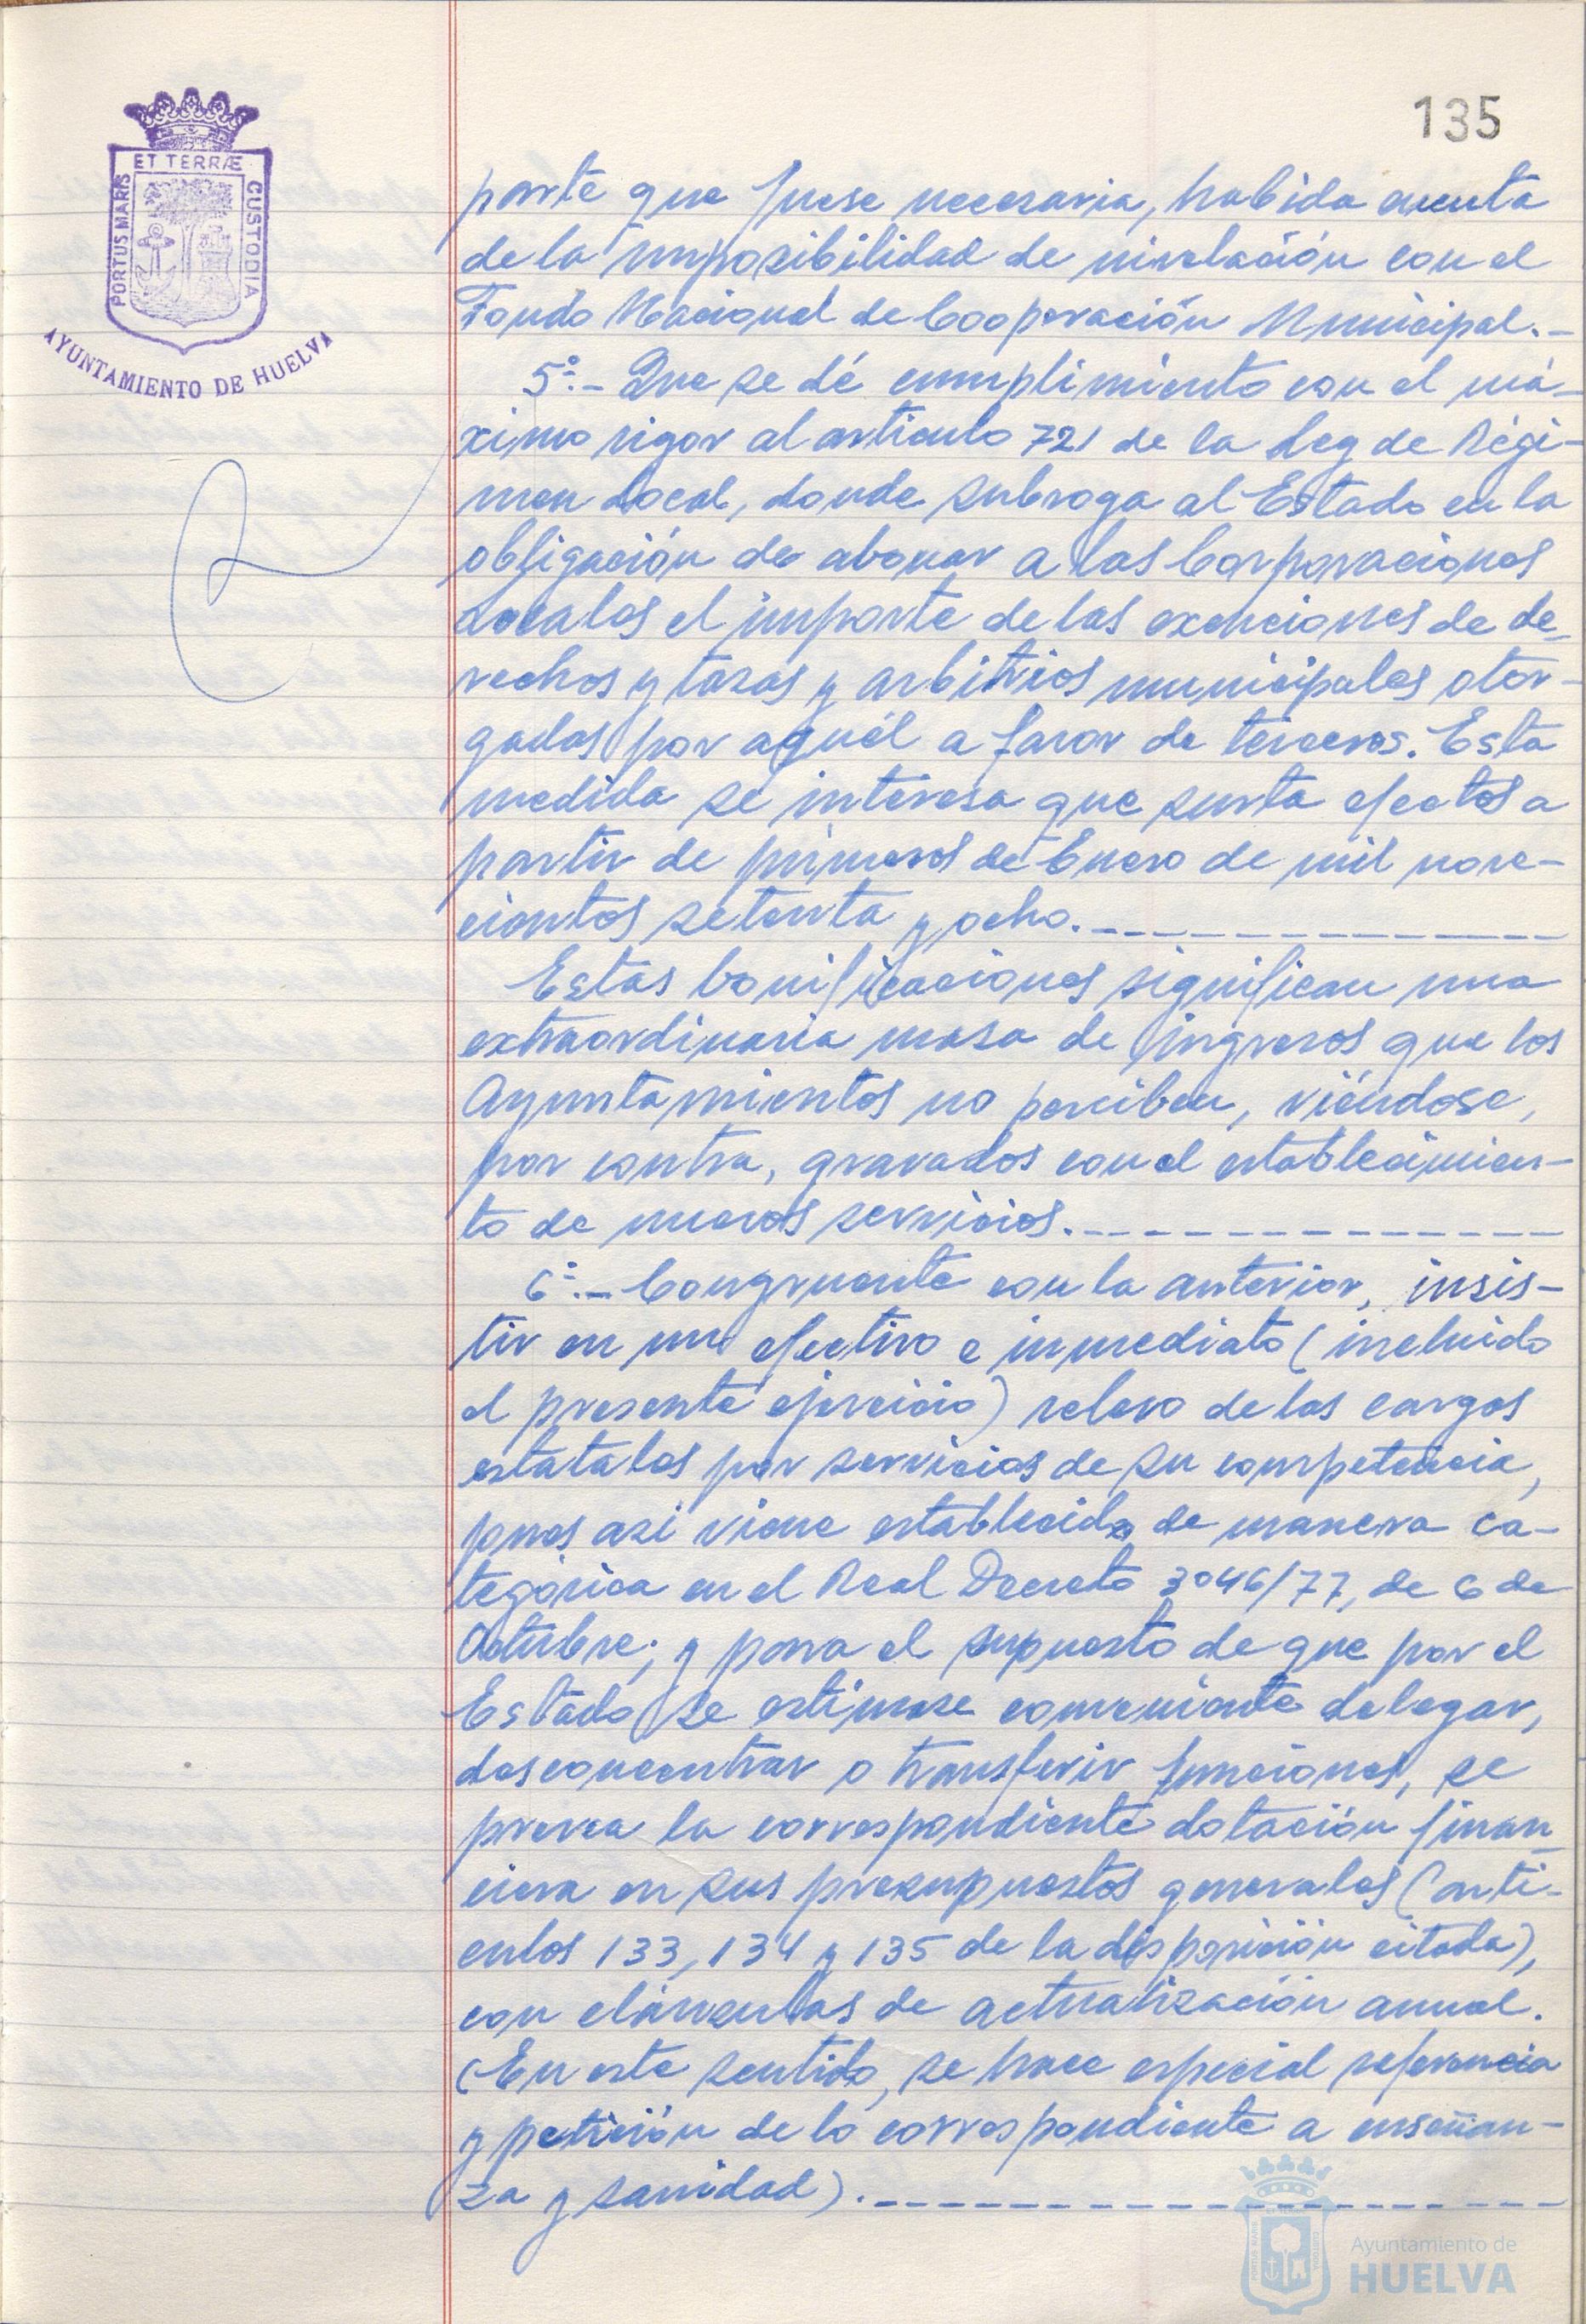 135
ET TERRÆ
PORTUS MARIS
CUSTODIA
AYUNTAMIENTO DE HUELVA
parte que fuese necesaria, habida cuenta
de la imposibilidad de nivelación con el
Fondo Nacional de Cooperación Municipal.-
5º.- Que se dé cumplimiento con el má-
ximo rigor al artículo 721 de la Ley de Régi-
men Local, donde subroga al Estado en la
obligación de abonar a las Corporaciones
Locales el importe de las exenciones de de-
rechos y tasas y arbitrios municipales otor-
gados por aquél a favor de terceros. Esta
medida se interesa que surta efectos a
partir de primeros de Enero de mil nove-
cientos setenta y ocho.-
Estas bonificaciones significan una
extraordinaria masa de ingresos que los
Ayuntamientos no perciben, viéndose,
por contra, gravados con el establecimien-
to de nuevos servicios.-
6º.- Congruente con la anterior, insis-
tir en un efectivo e inmediato (incluido
el presente ejercicio) relevo de las cargas
estatales por servicios de su competencia,
pues asi viene establecido de manera ca-
tegórica en el Real Decreto 3046/77, de 6 de
Octubre; y para el supuesto de que por el
Estado se estimase conveniente delegar,
desconcentrar o transferir funciones, se
prevea la correspondiente dotación finan-
ciera en sus presupuestos generales (artí-
culos 133, 134 y 135 de la disposición citada),
con cláusulas de actualización anual.
(En este sentido, se hace especial referencia
y petición de lo correspondiente a enseñan-
za y sanidad).-
Ayuntamiento de
HUELVA